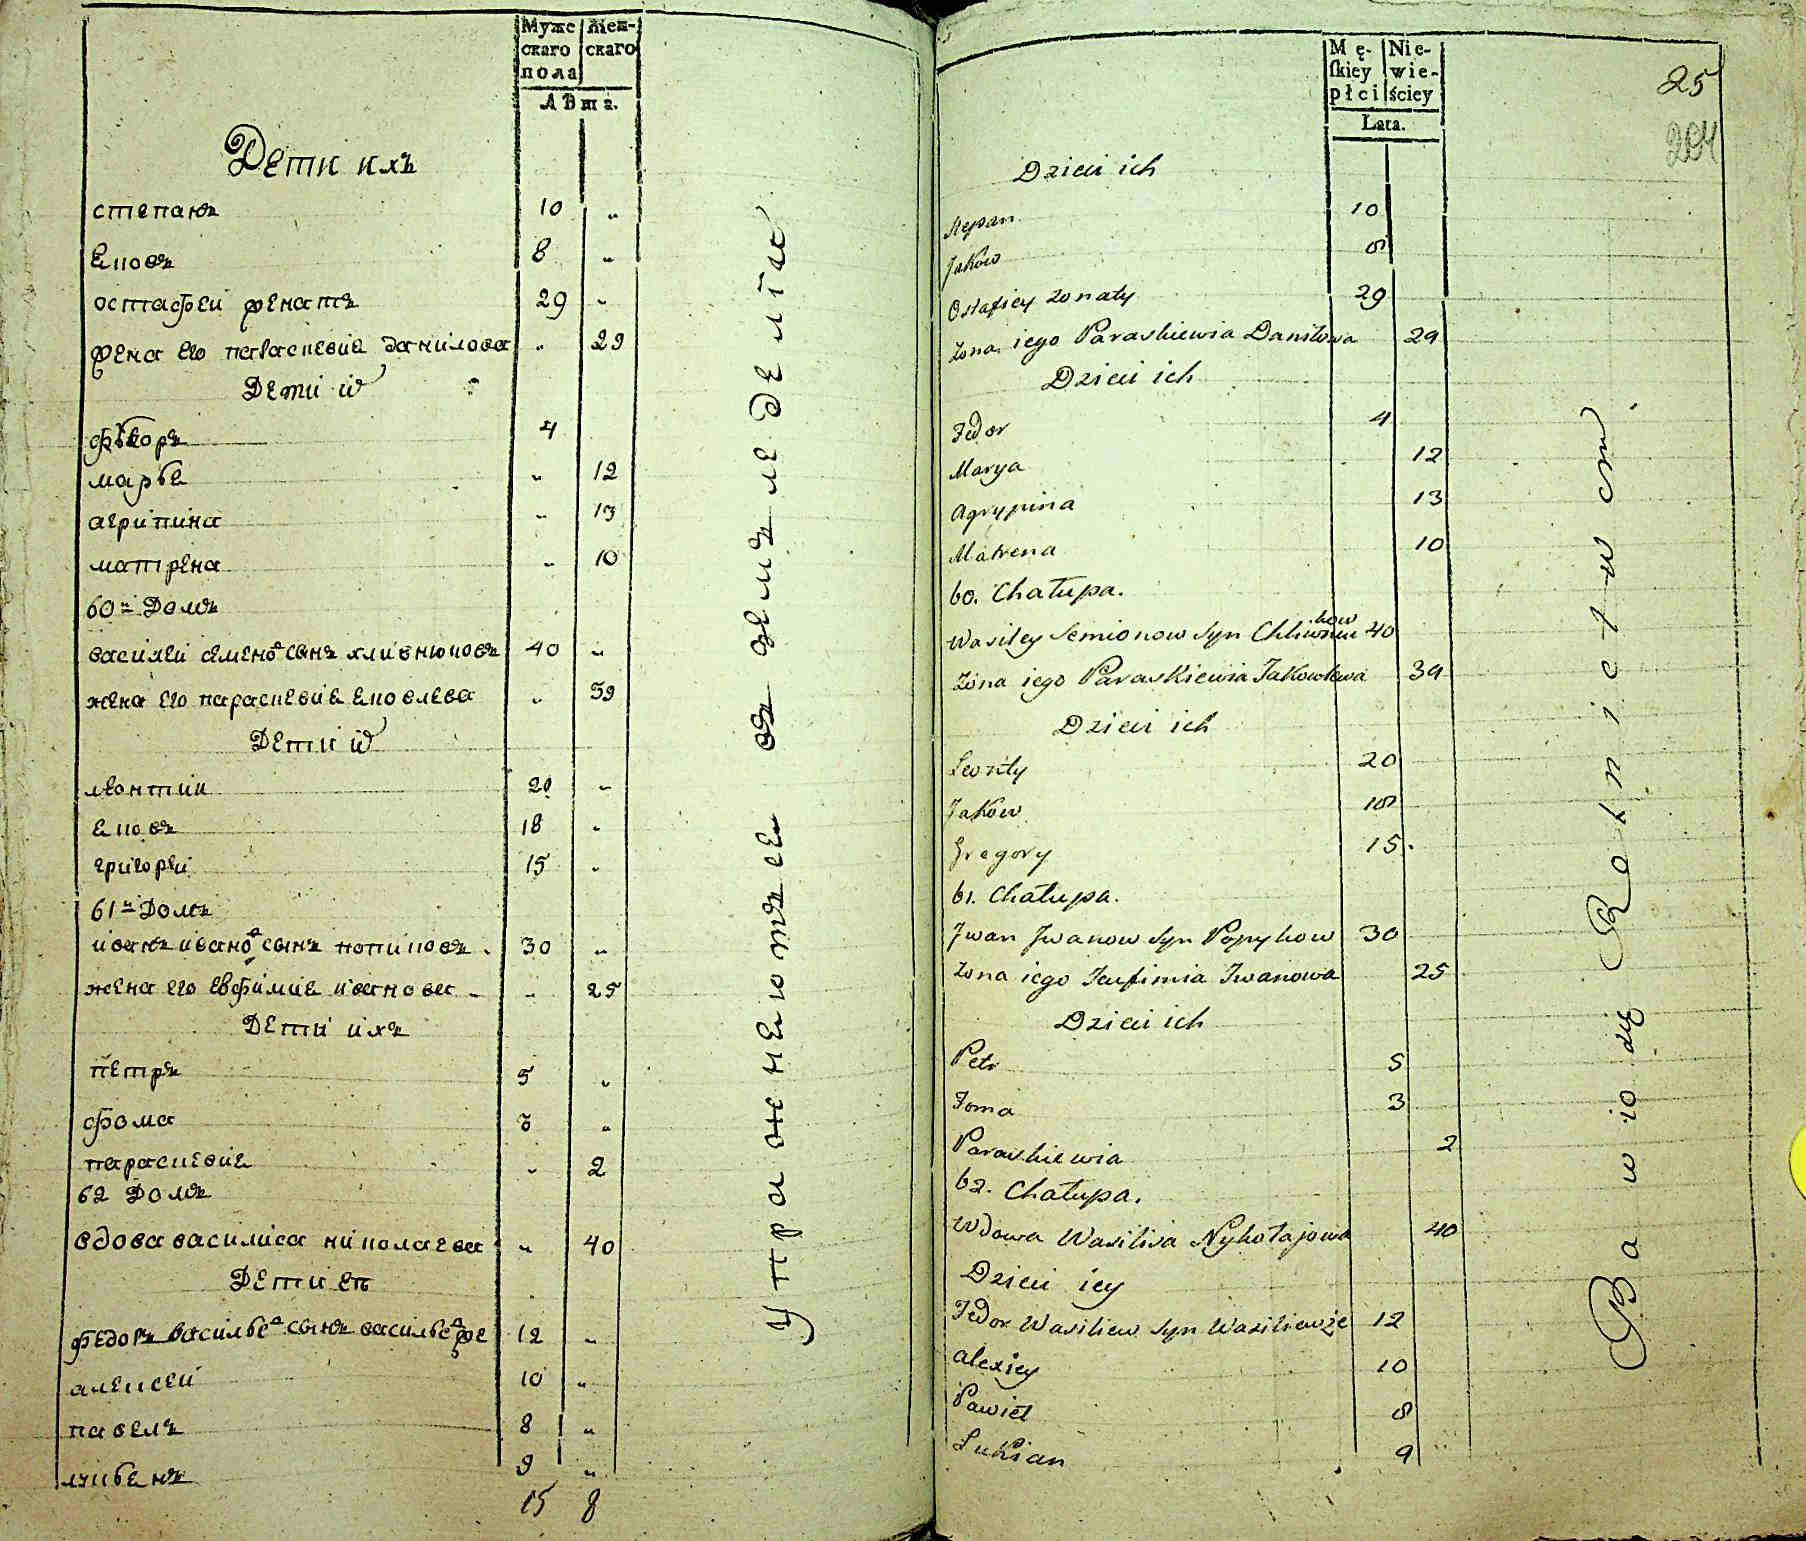 Муже Жен-
скаго скаго
пола
Лѣта.
Дети ихъ
степанъ 10 „
Яковъ 8 „
остафеи женатъ 29 „
жена его параскевия данилова „ 29
Дети их
федоръ 4
марья „ 12
агрипина „ 13
матрена „ 10
60й Домъ
василеи семено​в сынъ хливнюковъ 40 „
жена его параскевия яковлева „ 39
Дети их
леонтии 20 „
яковъ 18 „
григореи 15 „
61й Домъ
иванъ ивано​в сынъ попиковъ 30 „
жена его евфимия иванова „ 25
Дети ихъ
петръ 5 „
фома 3 „
параскевия „ 2
62 Домъ
вдова василиса николаева „ 40
Дети ея
федоръ василье​в сынъ василье​в же 12 „
алексеи 10 „
павелъ 8 „
лукьянъ 9 „
15 8
Упражнеютъся въ земледелiи
25
204
Mę- Nie-
skiey wie-
płci ściey
Lata.
Dzieci ich
Stepan 10
Jaków 8
Ostafiey żonaty 29
Żona iego Paraskiewia Daniłowa 29
Dzieci ich
Fedor 4
Marya 12
Agrypina 13
Matrena 10
60. Chałupa.
Wasiley Semionow syn 40
Żona iego Paraskiewia Jakowlewa 39
Dzieci ich
Leonty 20
Jaków 18
Gregory 15.
61. Chałupa.
Jwan Jwanow syn Popykow 30
Żona iego Jeufimia Iwanowa 25
Dzieci ich
Petr 5
Foma 3
Paraskiewia 2
62. Chałupa.
Wdowa Wasilisa Nykołajowa 40
Dzieci iey
Fedor Wasiliew syn Wasiliewże 12
Alexiey 10
Pawieł 8
Lukian 9
Bawią się Rolnictwem